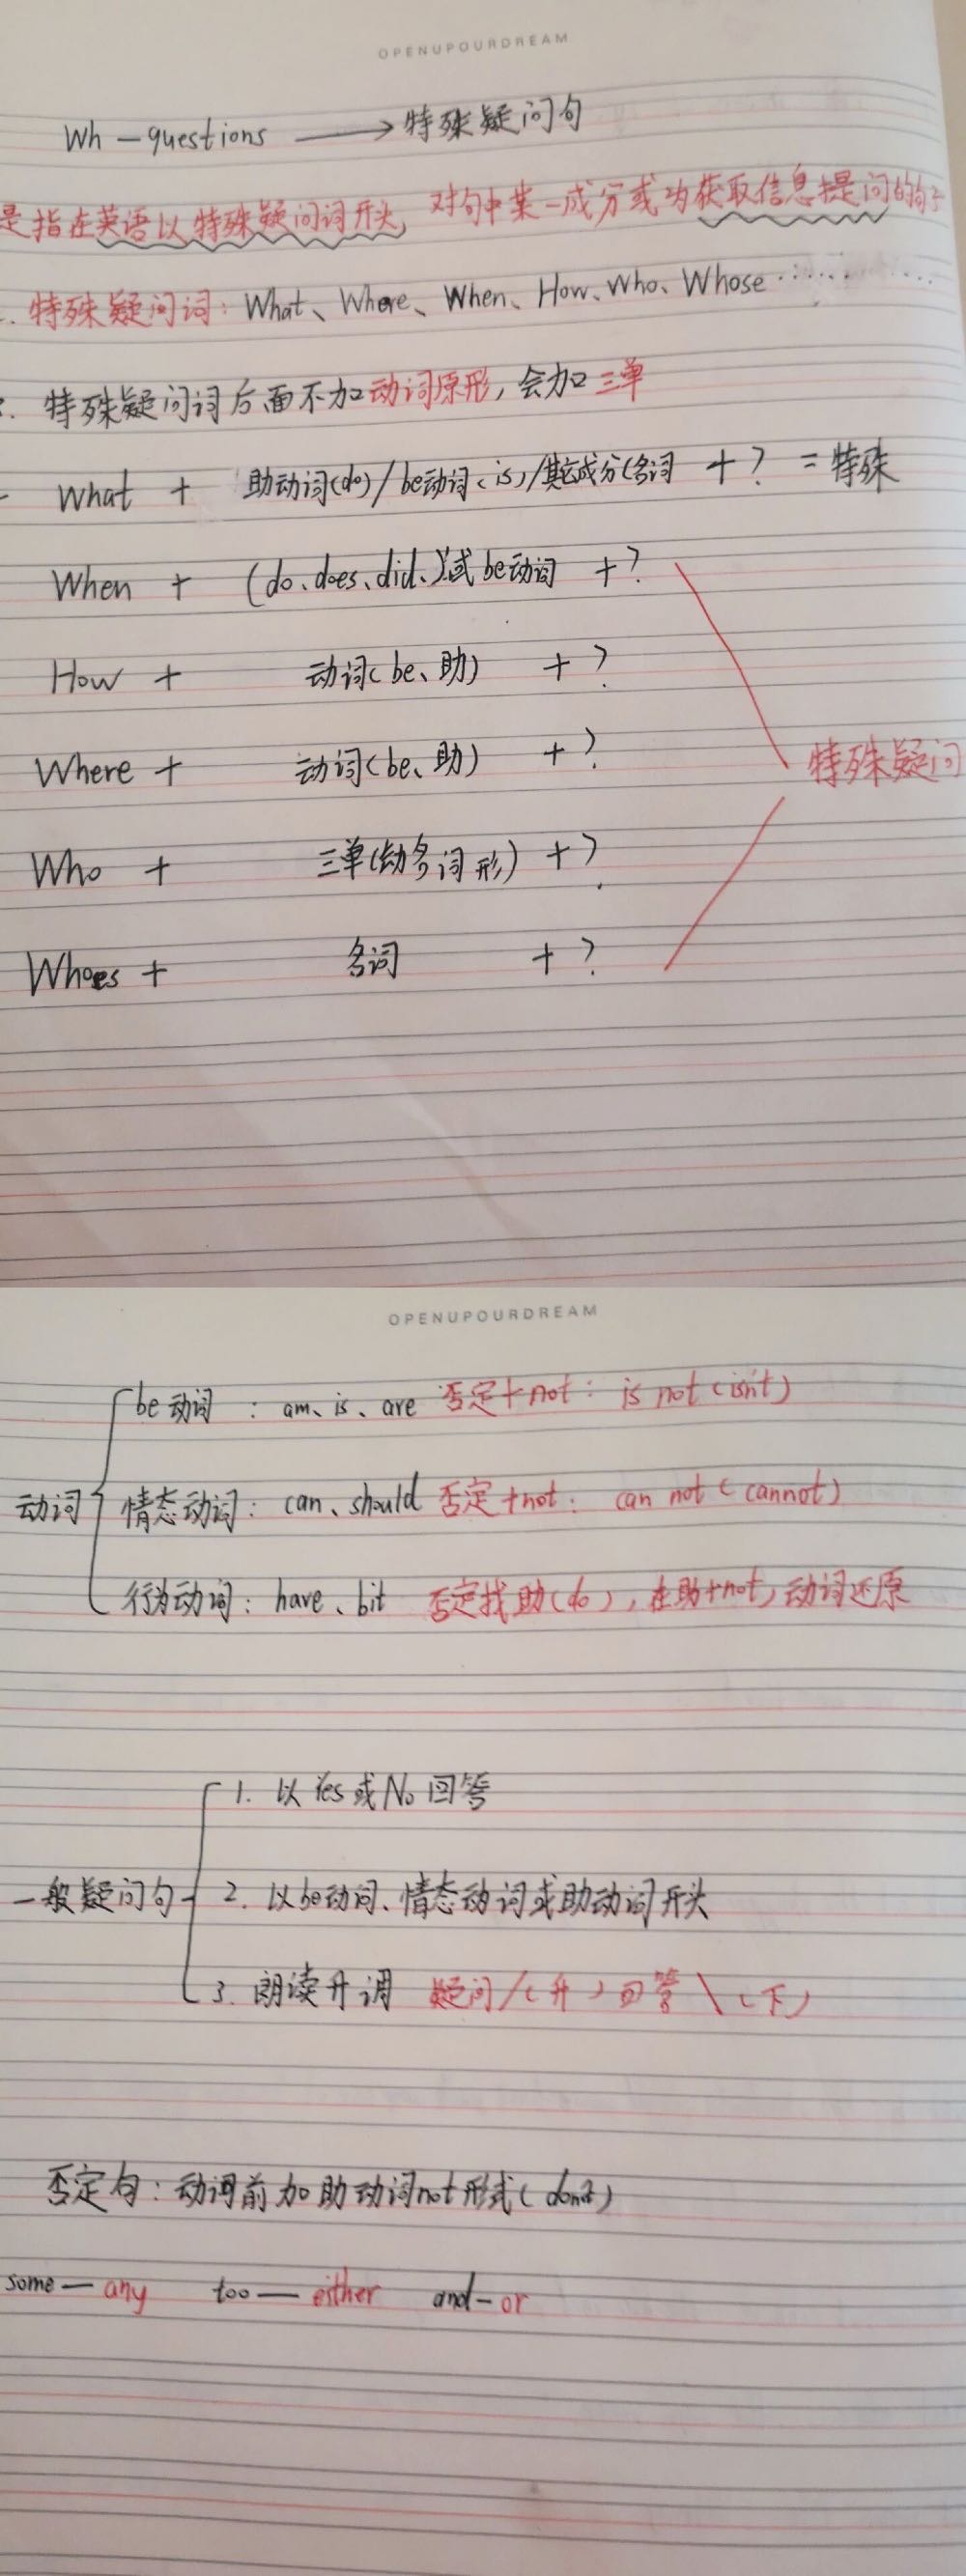 OPENUPOURDREAM
Wh-questions → 特殊疑问句
是指在英语以特殊疑问词开头,对句中某一成分或为获取信息提问的句子
. 特殊疑问词: What、Where、When、How、Who、Whose ......
. 特殊疑问词后面不加动词原形,会加三单
What + 助动词(do)/be动词(is)/其它成分(名词 + ? = 特殊
When + (do、does、did、)或be动词 + ?
How + 动词(be、助) + ?
Where + 动词(be、助) + ?
特殊疑问
Who + 三单(动名词形) + ?
Whoes + 名词 + ?
OPENUPOURDREAM
be动词: am、is、are 否定+not: is not (isn't)
动词 情态动词: can、should 否定+not: can not (cannot)
行为动词: have、bit 否定找助(do),在助+not,动词还原
1. 以Yes或No回答
一般疑问句 2. 以be动词、情态动词或助动词开头
3. 朗读升调 疑问/(升)回答\(下)
否定句: 动词前加助动词not形式(don't)
some—any too—either and-or